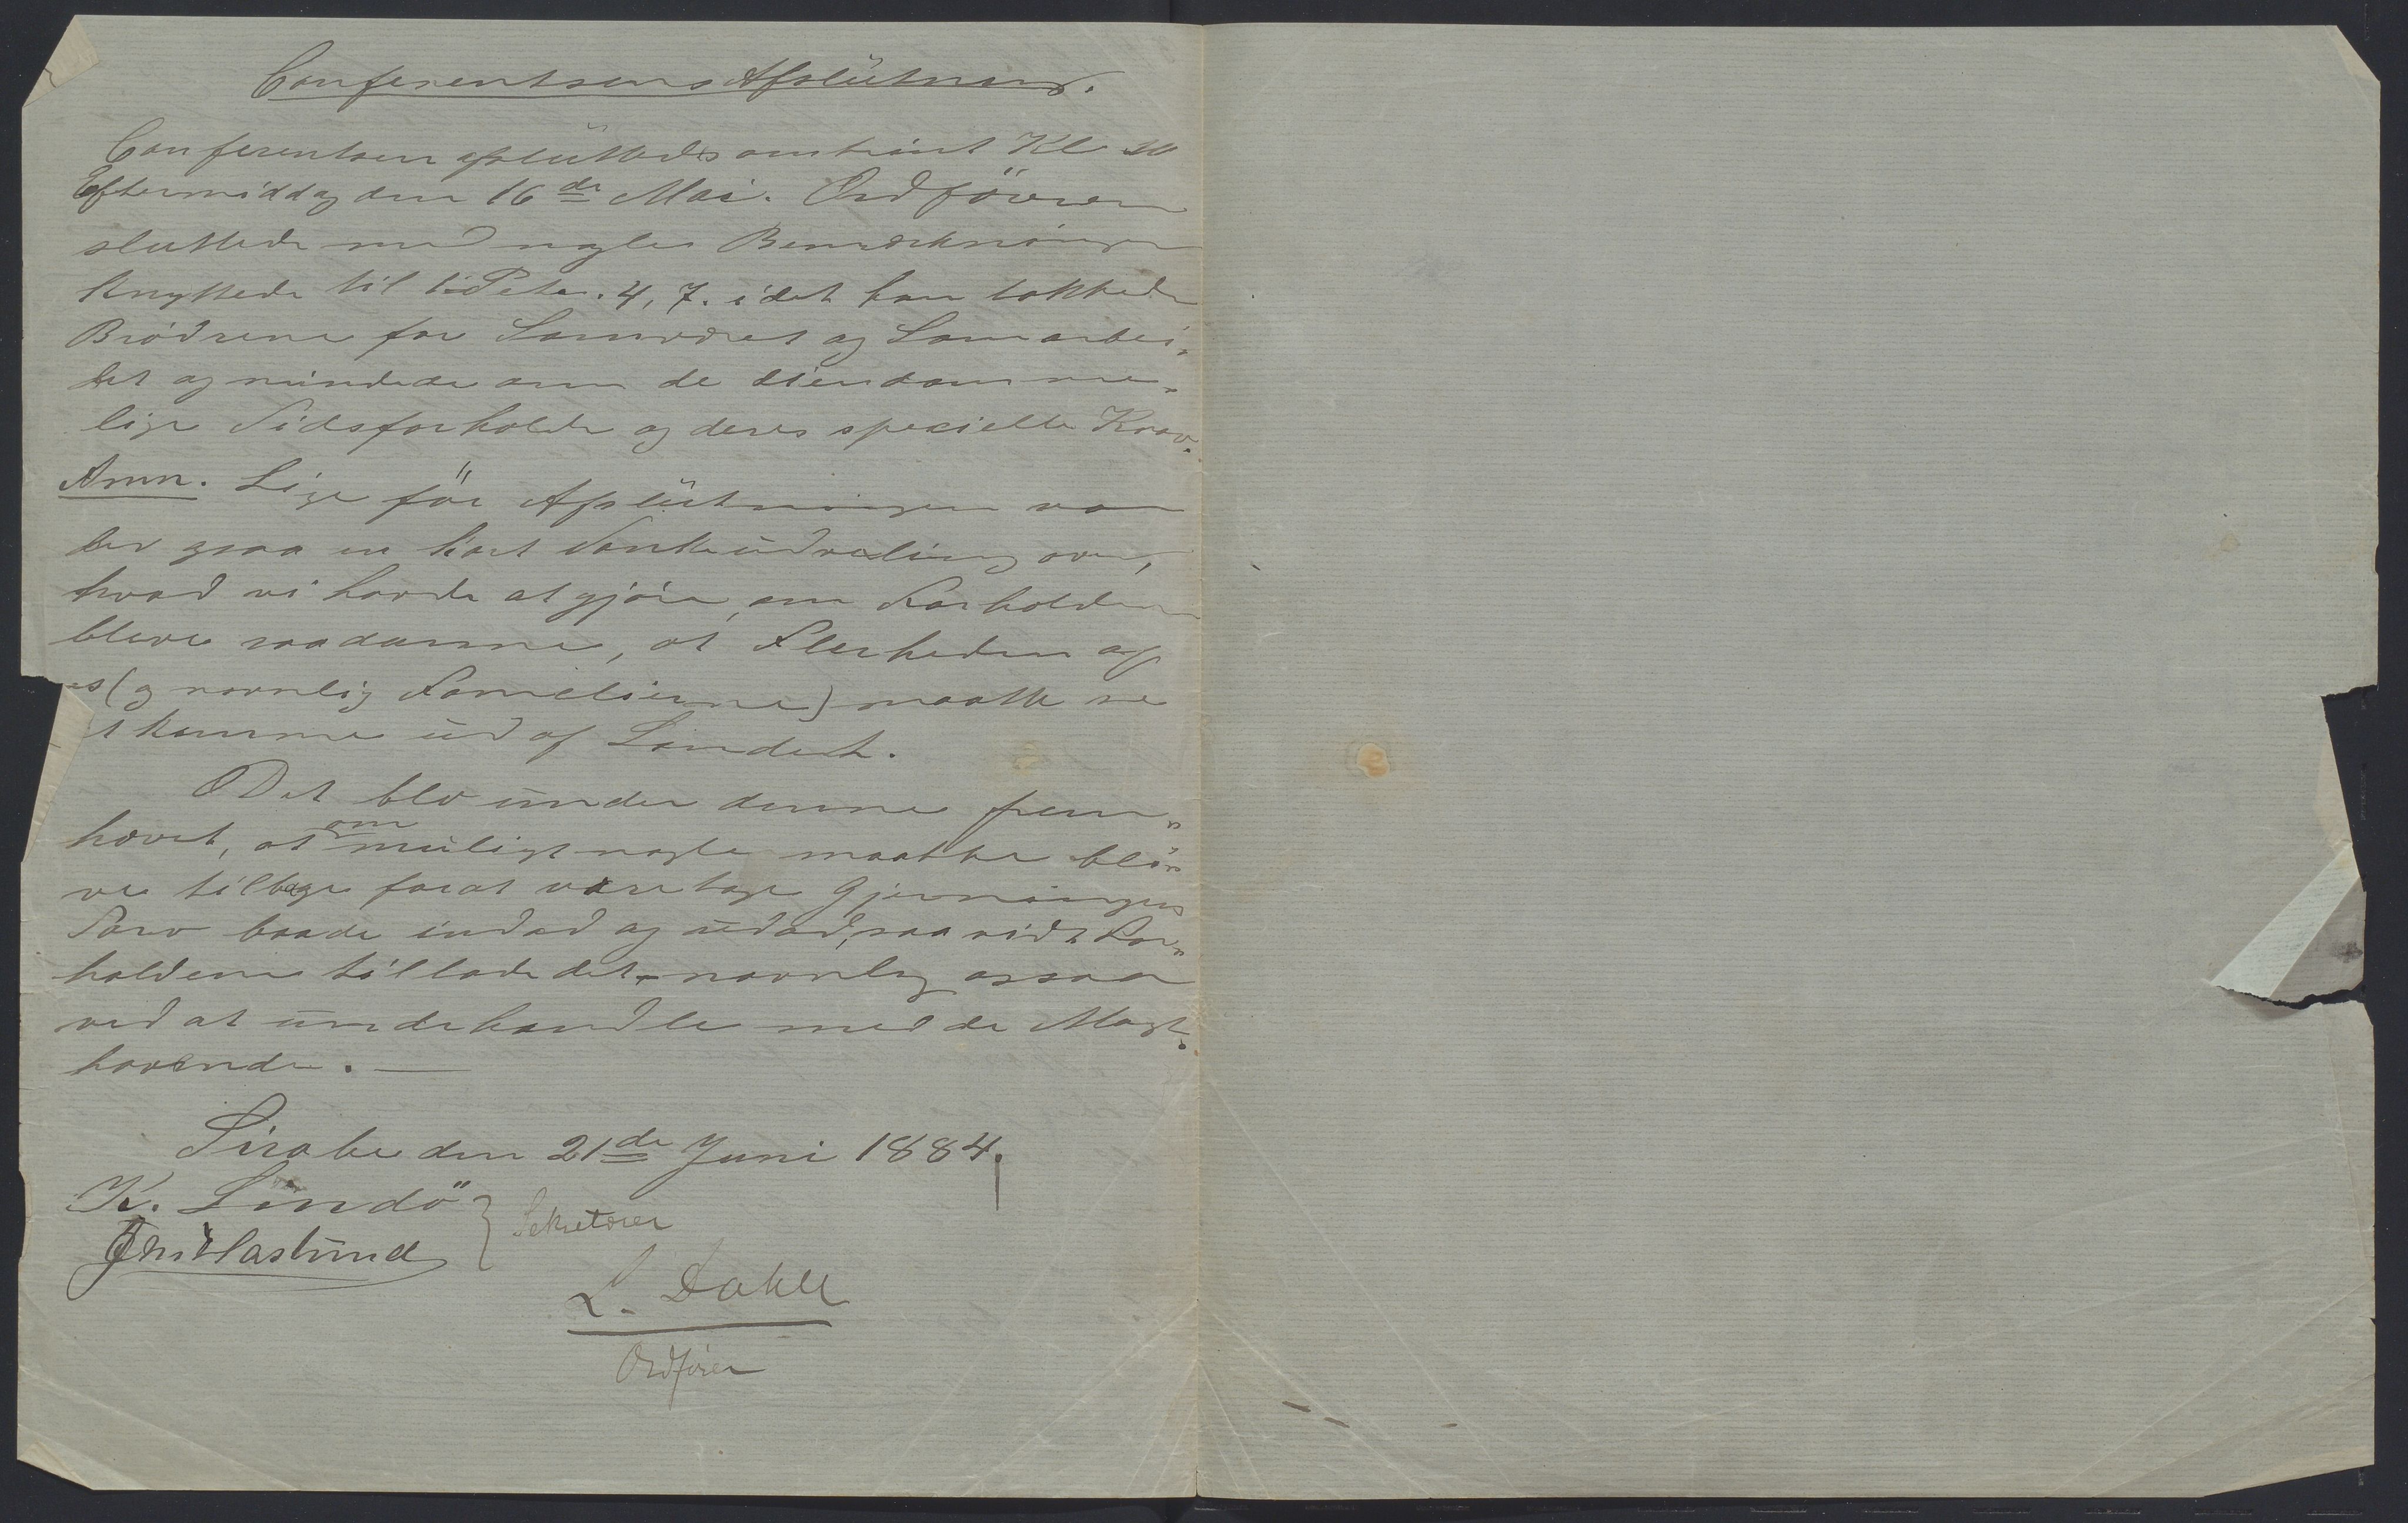 Conferentsens Afslütning.
Conferentsen afslüttedes omtrent Kl
Eftermiddag den 16de Mai. Ordföreren
sluttede med nogle Bemærkninger
knyttede til 1 Peter. 4, 7. idet han takkede
Brödrene for Samværet og Samarbei-
det og mindede om de eiendomme-
lige Tidsforholde og deres specielle Krav.
Anm. Lige för Afslütningen var
der ogsaa en kort Tankeüdvexling om,
hvad vi havde at gjöre, om Forholdene
bleve saadanne, at Flerheden af
os (og navnlig Familierne) maatte se
at komme üd af Landet.
Det blev ünder denne frem-
hævet, at om müligt nogle maatte bli-
ve tilbage forat varetage Gjerningens
Tarv baade indad og üdad, saavidt For-
holdene tillade det - navnlig ogsaa
ved at ünderhandle med de Magt-
havende. —
Sirabe den 21de Juni 1884.
K. Lindö
Chr Haslünd } Sekretærer
L. Dahle
Ordförer